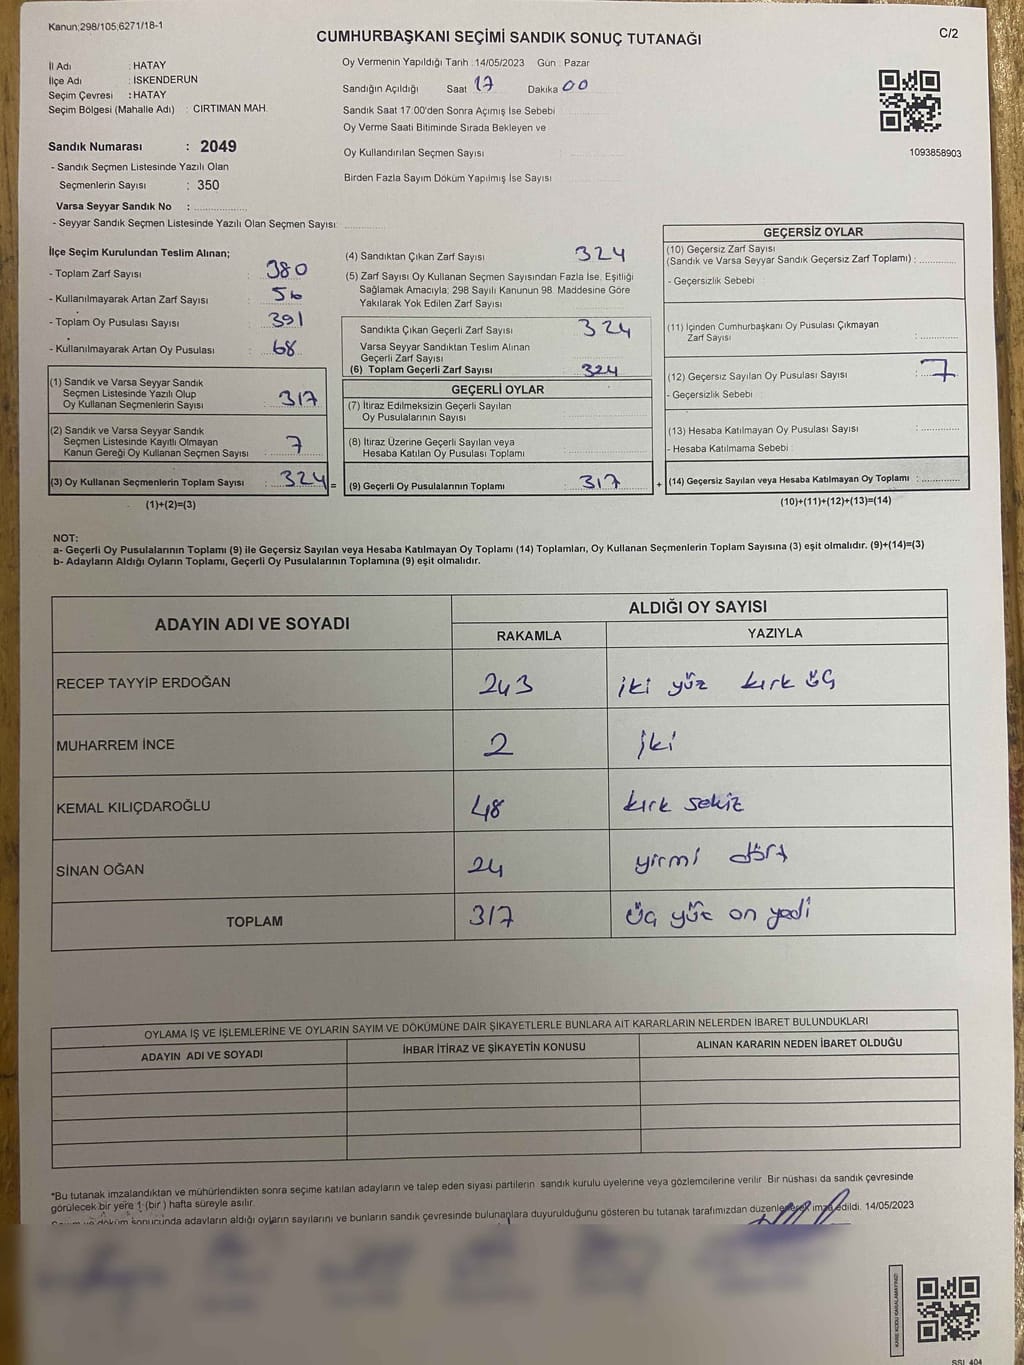 Kanun;298/105,6271/18-1
CUMHURBAŞKANI SEÇİMİ SANDIK SONUÇ TUTANAĞI
C/2
İl Adı : HATAY
İlçe Adı : İSKENDERUN
Seçim Çevresi : HATAY
Seçim Bölgesi (Mahalle Adı) : CIRTIMAN MAH.
Oy Vermenin Yapıldığı Tarih : 14/05/2023 Gün : Pazar
Sandığın Açıldığı Saat 17 Dakika 00
Sandık Saat 17:00'den Sonra Açımış İse Sebebi
Oy Verme Saati Bitiminde Sırada Bekleyen ve
Oy Kullandırılan Seçmen Sayısı
Birden Fazla Sayım Döküm Yapılmış İse Sayısı
1093858903
Sandık Numarası : 2049
- Sandık Seçmen Listesinde Yazılı Olan
Seçmenlerin Sayısı : 350
Varsa Seyyar Sandık No :
- Seyyar Sandık Seçmen Listesinde Yazılı Olan Seçmen Sayısı:
İlçe Seçim Kurulundan Teslim Alınan;
- Toplam Zarf Sayısı : 380
- Kullanılmayarak Artan Zarf Sayısı : 56
- Toplam Oy Pusulası Sayısı : 391
- Kullanılmayarak Artan Oy Pusulası : 68
(1) Sandık ve Varsa Seyyar Sandık
Seçmen Listesinde Yazılı Olup
Oy Kullanan Seçmenlerin Sayısı : 317
(2) Sandık ve Varsa Seyyar Sandık
Seçmen Listesinde Kayıtlı Olmayan
Kanun Gereği Oy Kullanan Seçmen Sayısı : 7
(3) Oy Kullanan Seçmenlerin Toplam Sayısı : 324 =
(1)+(2)=(3)
(4) Sandıktan Çıkan Zarf Sayısı 324
(5) Zarf Sayısı Oy Kullanan Seçmen Sayısından Fazla İse, Eşitliği
Sağlamak Amacıyla; 298 Sayılı Kanunun 98. Maddesine Göre
Yakılarak Yok Edilen Zarf Sayısı
Sandıkta Çıkan Geçerli Zarf Sayısı 324
Varsa Seyyar Sandıktan Teslim Alınan
Geçerli Zarf Sayısı
(6) Toplam Geçerli Zarf Sayısı 324
GEÇERLİ OYLAR
(7) İtiraz Edilmeksizin Geçerli Sayılan
Oy Pusulalarının Sayısı
(8) İtiraz Üzerine Geçerli Sayılan veya
Hesaba Katılan Oy Pusulası Toplamı
(9) Geçerli Oy Pusulalarının Toplamı : 317 +
GEÇERSİZ OYLAR
(10) Geçersiz Zarf Sayısı
(Sandık ve Varsa Seyyar Sandık Geçersiz Zarf Toplamı) :
- Geçersizlik Sebebi :
(11) İçinden Cumhurbaşkanı Oy Pusulası Çıkmayan
Zarf Sayısı :
(12) Geçersiz Sayılan Oy Pusulası Sayısı : 7
- Geçersizlik Sebebi :
(13) Hesaba Katılmayan Oy Pusulası Sayısı :
- Hesaba Katılmama Sebebi :
(14) Geçersiz Sayılan veya Hesaba Katılmayan Oy Toplamı :
(10)+(11)+(12)+(13)=(14)
NOT:
a- Geçerli Oy Pusulalarının Toplamı (9) ile Geçersiz Sayılan veya Hesaba Katılmayan Oy Toplamı (14) Toplamları, Oy Kullanan Seçmenlerin Toplam Sayısına (3) eşit olmalıdır. (9)+(14)=(3)
b- Adayların Aldığı Oyların Toplamı, Geçerli Oy Pusulalarının Toplamına (9) eşit olmalıdır.
ADAYIN ADI VE SOYADI
ALDIĞI OY SAYISI
RAKAMLA YAZIYLA
RECEP TAYYİP ERDOĞAN 243 iki yüz kırk üç
MUHARREM İNCE 2 iki
KEMAL KILIÇDAROĞLU 48 kırk sekiz
SİNAN OĞAN 24 yirmi dört
TOPLAM 317 üç yüz on yedi
OYLAMA İŞ VE İŞLEMLERİNE VE OYLARIN SAYIM VE DÖKÜMÜNE DAİR ŞİKAYETLERLE BUNLARA AİT KARARLARIN NELERDEN İBARET BULUNDUKLARI
ADAYIN ADI VE SOYADI İHBAR İTİRAZ VE ŞİKAYETİN KONUSU ALINAN KARARIN NEDEN İBARET OLDUĞU
*Bu tutanak imzalandıktan ve mühürlendikten sonra seçime katılan adayların ve talep eden siyasi partilerin sandık kurulu üyelerine veya gözlemcilerine verilir. Bir nüshası da sandık çevresinde
görülecek bir yere 1 (bir ) hafta süreyle asılır.
döküm sonucunda adayların aldığı oyların sayılarını ve bunların sandık çevresinde bulunanlara duyurulduğunu gösteren bu tutanak tarafımızdan düzenlenerek imza edildi. 14/05/2023